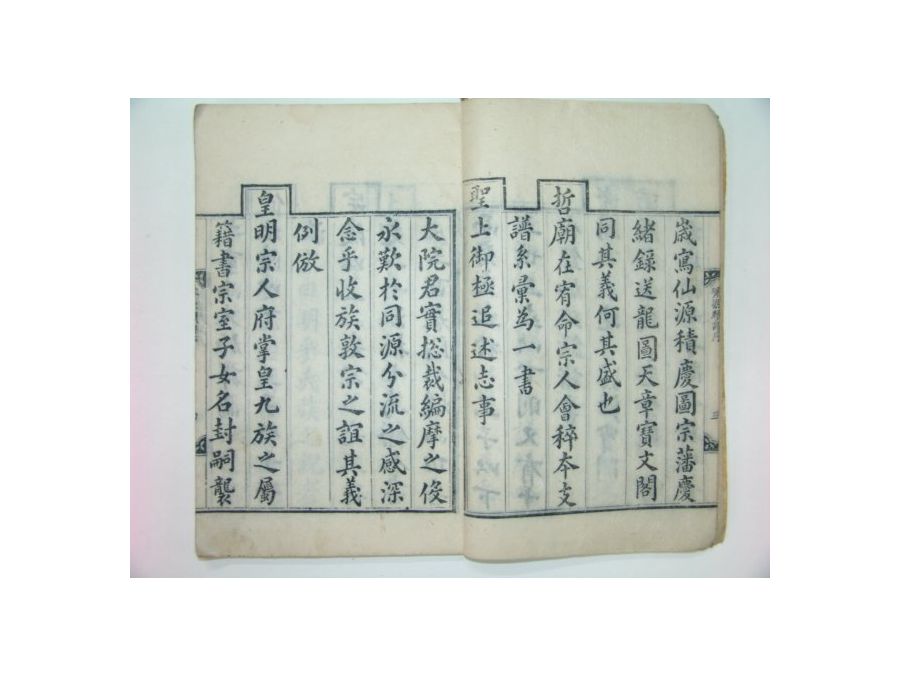 歲寫仙源積慶圖宗藩慶
緒錄送龍圖天章寶文閣
同其義何其盛也
哲廟在宥命宗人會稡本支
譜系彙為一書
聖上御極追述志事
大院君實揔裁編摩之役
永歎於同源分流之感深
念乎收族敦宗之誼其義
例倣
皇明宗人府掌皇九族之屬
籍書宗室子女名封嗣襲